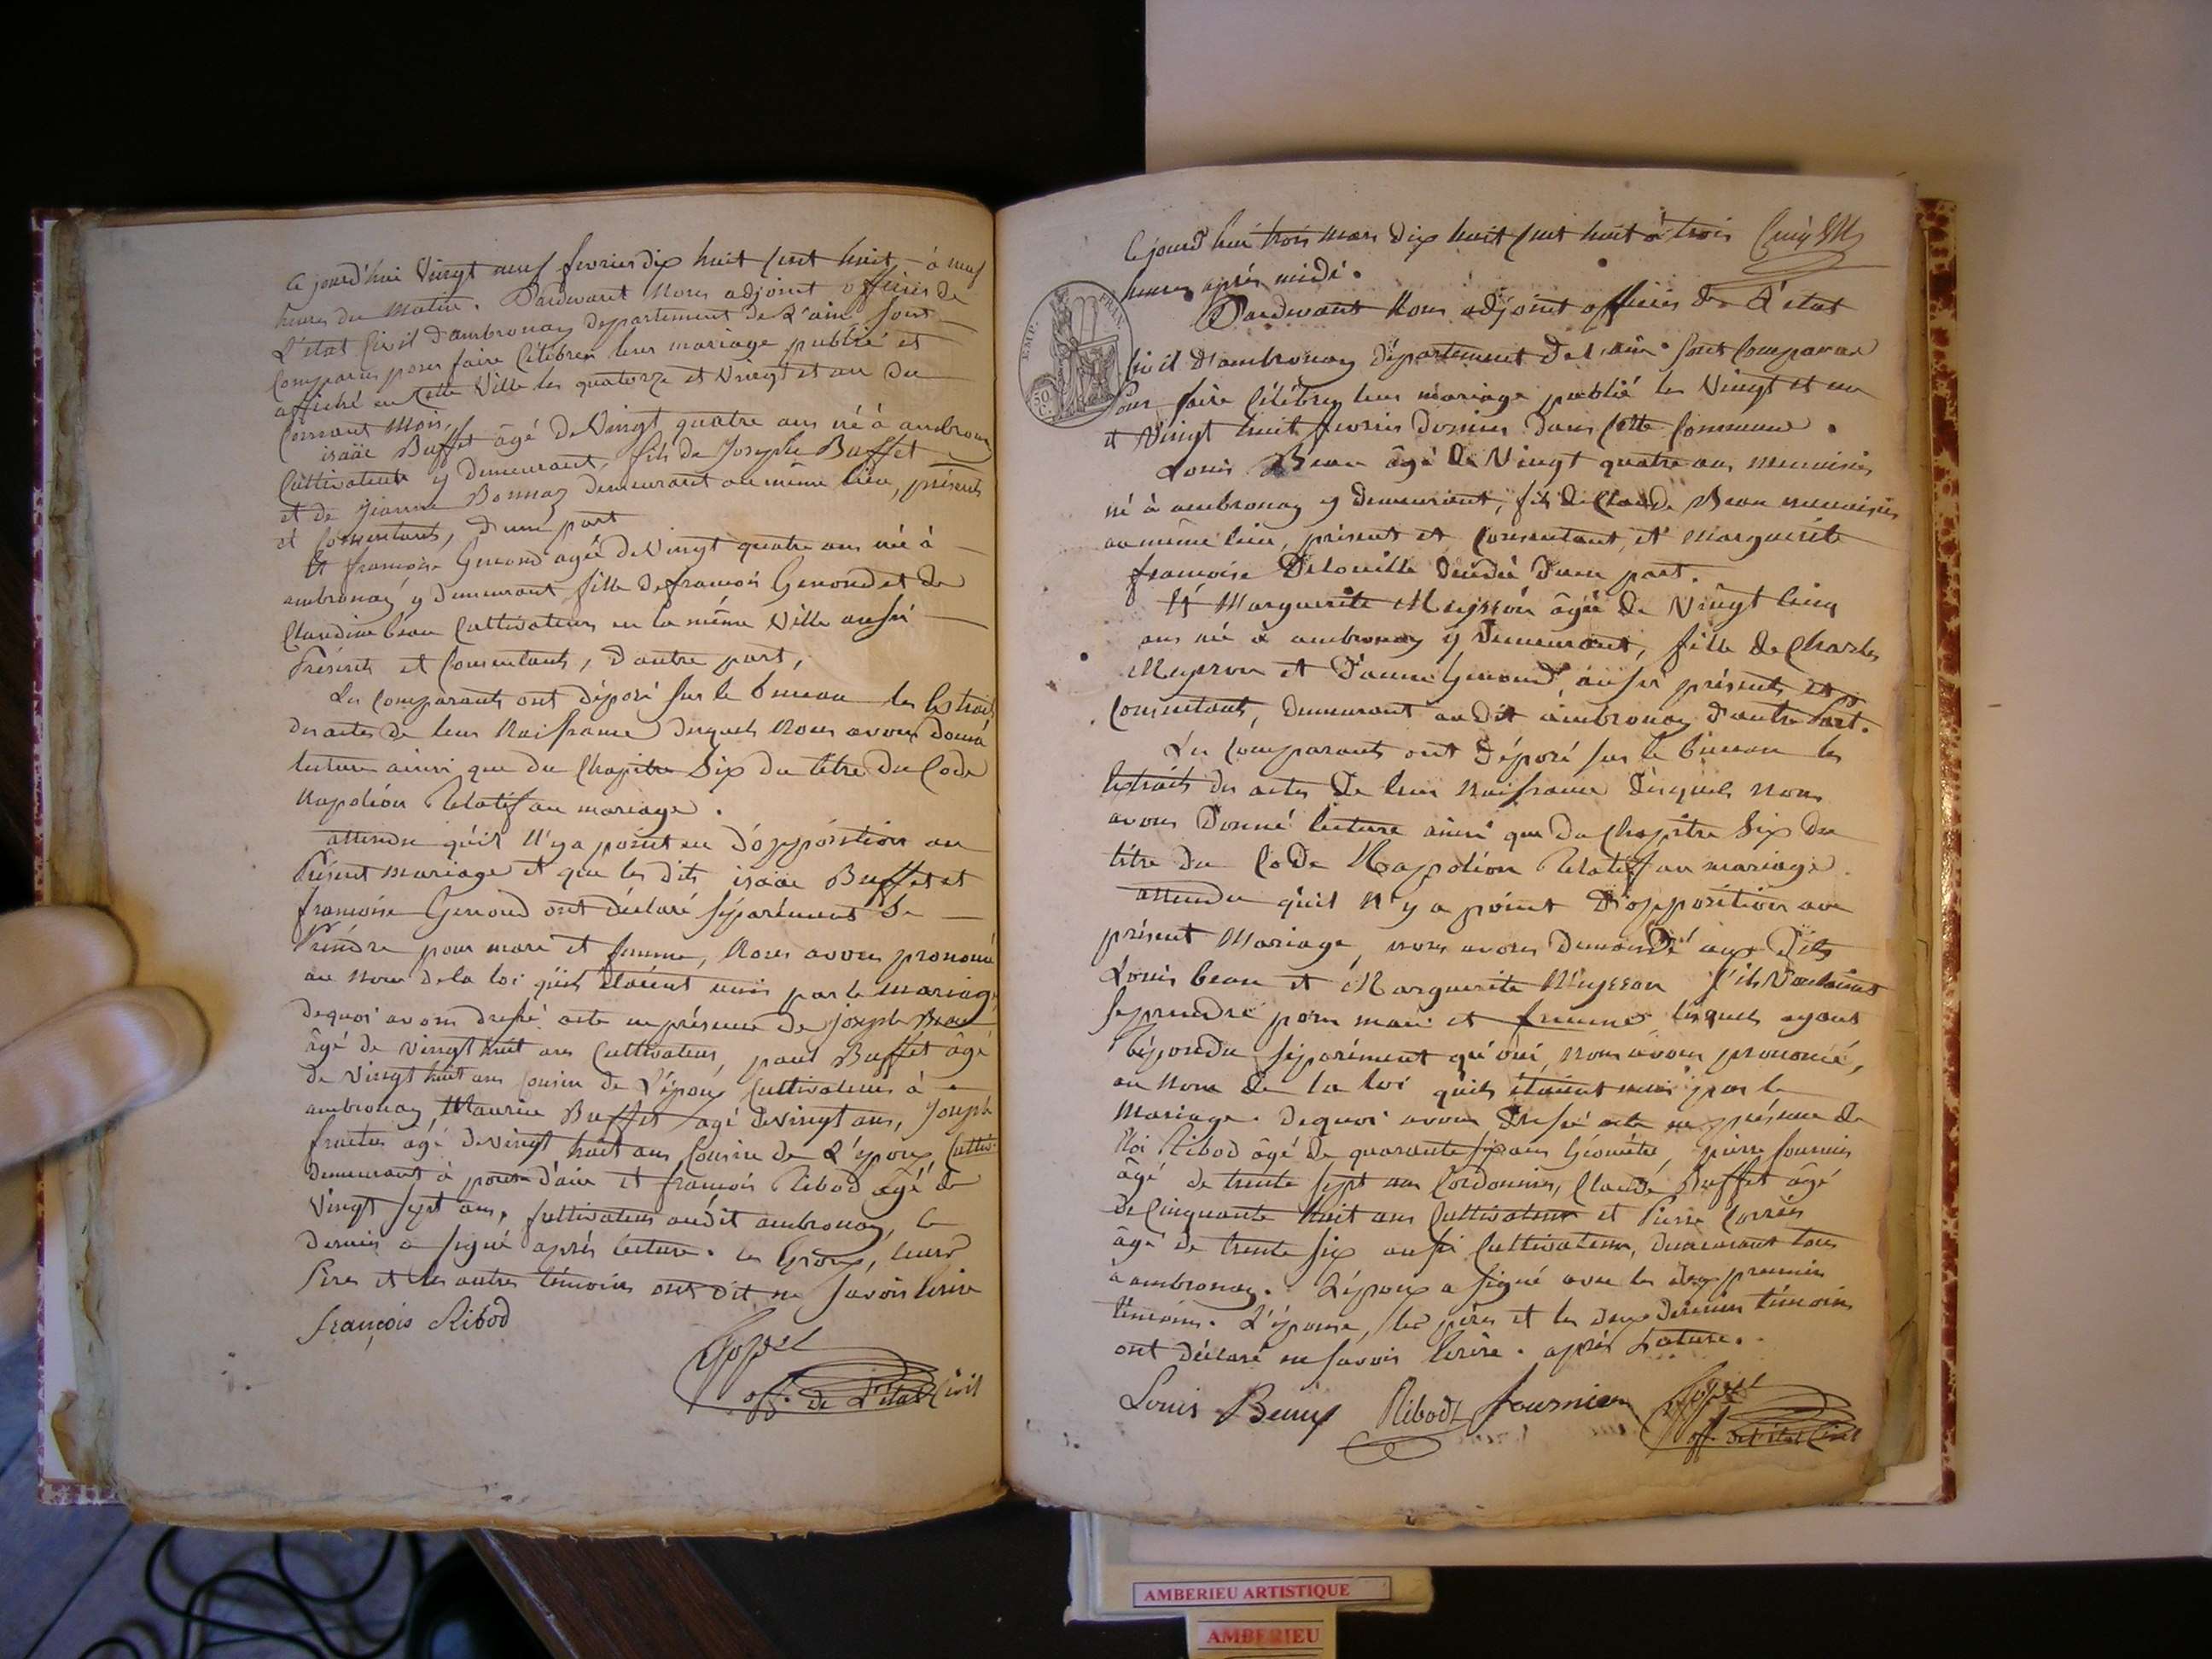 Ce jourd'hui Vingt neuf fevrier dix huit cent huit, à neuf
heures du Matin. Pardevant Nous adjoint officier de
L'état Civil d'ambronay departement de L'ain sont
Comparus pour faire Célébrer leur mariage publié et
affiché en Cette Ville les quatorze et Vingt et un du
Courant Mois,
isaäc Buffet âgé de Vingt quatre ans né à ambronay
Cultivateur y demeurant, fils de Joseph Buffet
et de Jeanne Bonnaz demeurant au même lieu, présents
et Consentants, d'une part
Et francoise Genoud agée de Vingt quatre ans née à
ambronay y demeurant fille de francois Genoud et de
Claudine beau Cultivateurs en la même Ville aussi
Présents et Consentants, d'autre part,
Les Comparants ont déposé sur le bureau les Extraits
des actes de leur Naissance desquels Nous avons donné
lecture ainsi que du Chapitre Six du titre du Code
Napoléon Relatif au mariage.
attendu qu'il N'y a point eu d'opposition au
Présent mariage et que les dits isaäc Buffet et
francoise Genoud ont déclaré séparément Se
Prendre pour mari et femme, Nous avons prononcé
au Nom de la loi qu'ils étaient unis par le mariage,
dequoi avons dressé acte en présence de Joseph Beau
âgé de vingt huit ans Cultivateur, paul Buffet âgé
de Vingt huit ans Cousin de L'époux Cultivateurs à
ambronay, Maurice Buffet agé de vingt ans, Joseph
âgé de vingt huit ans Cousin de L'époux Cultiv.
demeurant à pont d'ain et francois Ribod âgé de
Vingt sept ans, Cultivateur audit ambronay, le
dernier a signé après lecture. les Epoux, leurs
Pères et les autres témoins ont dit ne savoir Ecrire
François Ribod
off. de L'état Civil
Ce jourd'hui trois mars dix huit cent huit à trois
heures après midi.
EMP. FRAN.
50 C.
Pardevant Nous adjoint officier de L'état
Civil d'ambronay département de l'ain. Sont Comparus
Pour faire Célébrer leur mariage publié les Vingt et un
et Vingt huit fevrier dernier dans Cette Commune.
Louis Beau âgé de Vingt quatre ans menuisier
né à ambronay y demeurant, fils de Claude Beau menuisier
au même lieu, présent et Consentant, et Marguerite
francoise décédée d'une part.
Et Marguerite Meysson âgée de Vingt Cinq
ans née à ambronay y demeurant, fille de Charles
Meysson et d'anne Genoud, aussi présents et
Consentants, demeurant audit ambronay d'autre Part.
Les Comparants ont déposé sur le bureau les
Extraits des actes de leur Naissance desquels nous
avons donné lecture ainsi que du Chapitre Six du
titre du Code Napoléon Relatif au mariage.
attendu qu'il N'y a point d'opposition au
présent Mariage, nous avons demandé aux dits
Louis beau et Marguerite Meysson s'ils Voulaient
Se prendre pour mari et femme lesquels ayant
Répondu séparément qu'oui, nous avons prononcé,
au Nom de la loi qu'ils étaient unis par le
Mariage. dequoi avons dressé acte en présence de
Ribod âgé de quarante six ans Géomètre, pierre fournier
âgé de trente sept ans Cordonnier, Claude Buffet âgé
de Cinquante huit ans Cultivateur et Pierre
âgé de trente six aussi Cultivateur, demeurant tous
à ambronay. L'époux a signé avec les deux premiers
témoins. L'épouse, les pères et les deux derniers témoins
ont déclaré ne savoir Ecrire. après Lecture.
Louis Ribod fournier
off. de l'état Civil
AMBERIEU ARTISTIQUE
AMBERIEU